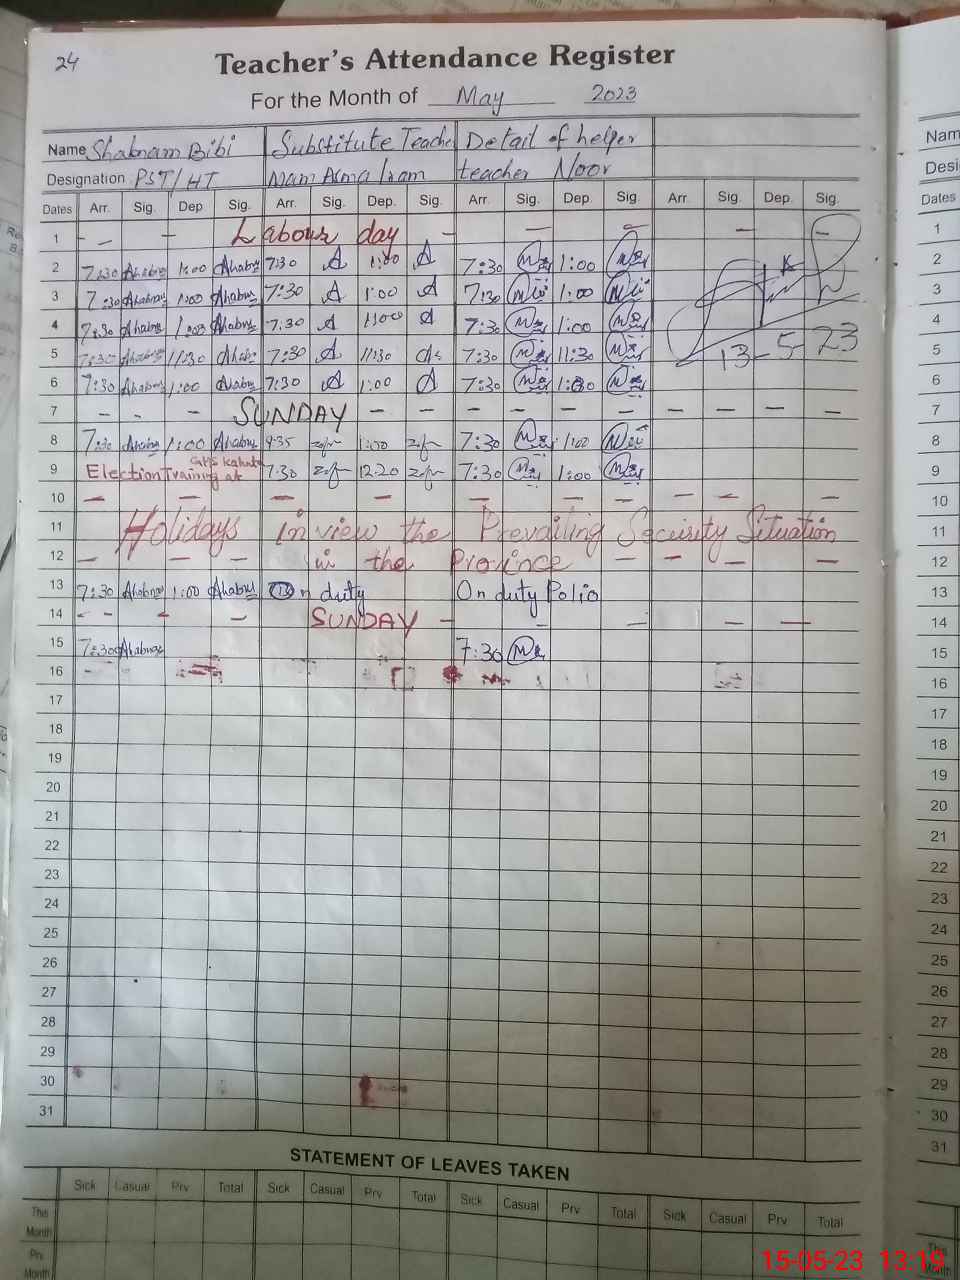 24
Teacher's Attendance Register
For the Month of May 2023
Name Shabnam Bibi Substitute Teache Detail of helper
Designation PST/HT Mam Asma Iram teacher Noor
Dates Arr. Sig. Dep. Sig. Arr. Sig. Dep. Sig. Arr. Sig. Dep. Sig. Arr. Sig. Dep. Sig.
1 Labour day
2 7:30 1:00 7:30 A 1:00 A 7:30 1:00
3 7:30 1:00 7:30 A 1:00 A 7:30 1:00
4 7:30 1:00 7:30 A 1:00 A 7:30 1:00
5 7:30 11:30 7:30 A 11:30 7:30 11:30 13-5-23
6 7:30 1:00 7:30 A 1:00 A 7:30 1:00
7 SUNDAY
8 7:30 1:00 9:35 1:00 7:30 1:00
9 Election Training at GHS 7:30 12:20 7:30 1:00
10
11 Holidays in view the Prevailing Security Situation
12 in the Province
13 7:30 1:00 On duty On duty Polio
14 SUNDAY
15 7:30 7:30
16
17
18
19
20
21
22
23
24
25
26
27
28
29
30
31
STATEMENT OF LEAVES TAKEN
Sick Casual Prv Total Sick Casual Prv Total Sick Casual Prv Total Sick Casual Prv Total
This Month
Prv Month
Nam
Desi
Dates
1
2
3
4
5
6
7
8
9
10
11
12
13
14
15
16
17
18
19
20
21
22
23
24
25
26
27
28
29
30
31
This
15-05-23 13:19